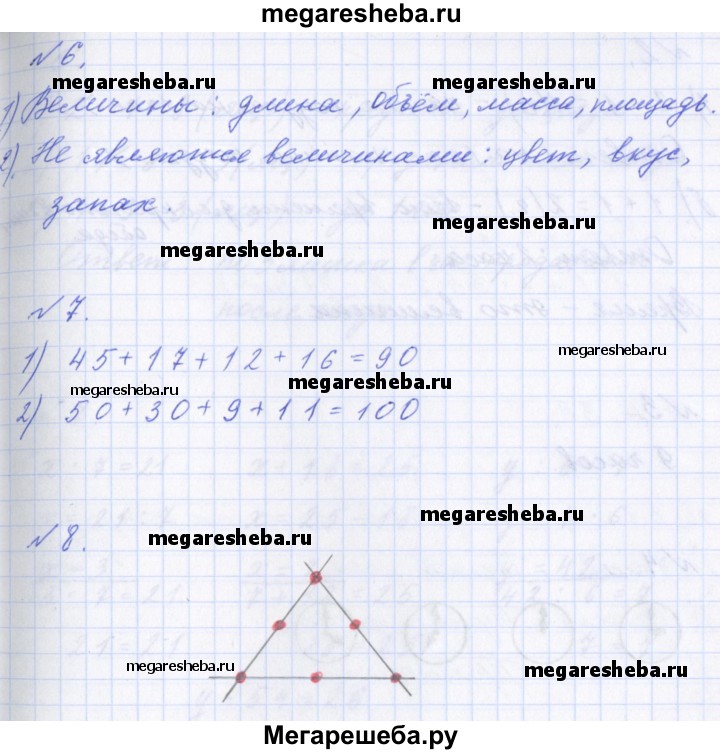 megaresheba.ru
№ 6.
megaresheba.ru megaresheba.ru
1) Величины: длина, объём, масса, площадь.
2) Не являются величинами: цвет, вкус,
запах.
megaresheba.ru
megaresheba.ru
№ 7.
1) 45 + 17 + 12 + 16 = 90
megaresheba.ru
megaresheba.ru
megaresheba.ru
2) 50 + 30 + 9 + 11 = 100
megaresheba.ru
№ 8.
megaresheba.ru
megaresheba.ru
megaresheba.ru
Мегарешеба.ру